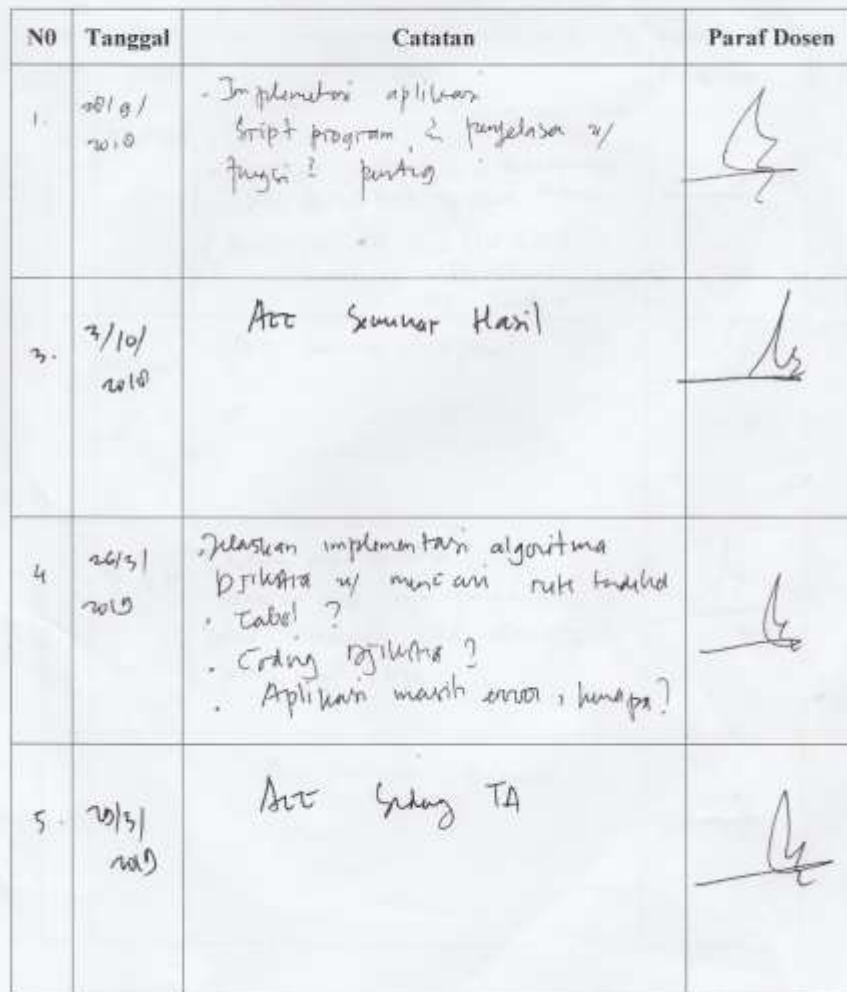 N0 Tanggal Catatan Paraf Dosen
1.
- Implemetasi aplikasi
Sript program, & penjelasan u/
fungsi 2
3. 3/10/ Acc Seminar Hasil
2018
4 26/3/ . Jelaskan implementasi algoritma
2019 Djikstra u/ mencari rute terdekat
. Tabel ?
. Coding Djikstra ?
. Aplikasi masih error, kenapa?
5. 29/3/ Acc Sidang TA
2019